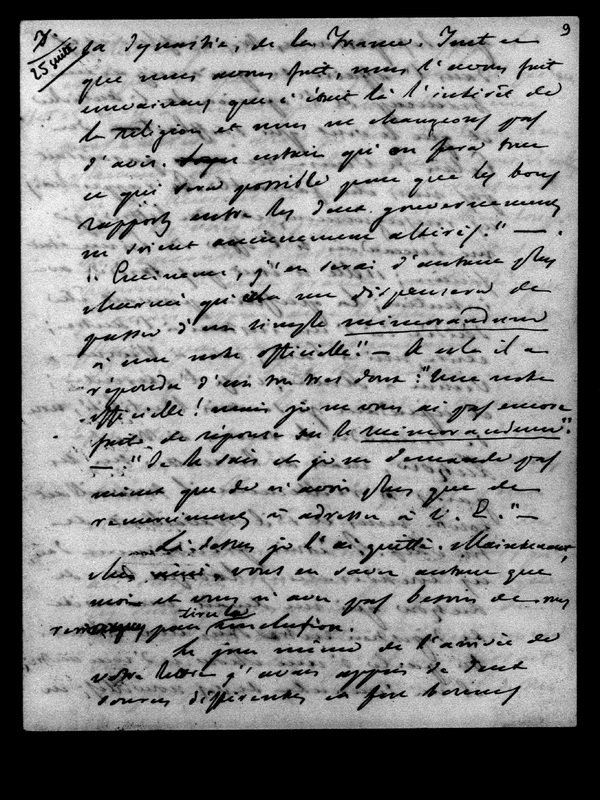 9
25 suite
la dynastie, de la France. Tout ce
que nous avons fait, nous l'avons fait
convaincus que c'était là l'intérêt de
la religion et nous ne changeons pas
d'avis. certain qu'on fera tout
ce qui sera possible pour que les bons
rapports entre les deux gouvernements
ne soient aucunement altérés." — .
"Eminence, j'en serai d'autant plus
charmé que cela me dispensera de
passer d'un simple memorandum
à une note officielle." — À cela il a
répondu d'un ton très doux : "Une note
officielle ! mais je ne vous ai pas encore
faite de réponse sur le memorandum".
— "Je le sais et je ne demande pas
mieux que de n'avoir plus que de
remerciements à adresser à V. E." —
Là-dessus je l'ai quitté. Maintenant,
cher ami, vous en savez autant que
moi et vous n'avez pas besoin de mes
remarques pour tirer la conclusion.
Le jour même de l'arrivée de
votre lettre j'avais appris de deux
sources différentes et fort bonnes